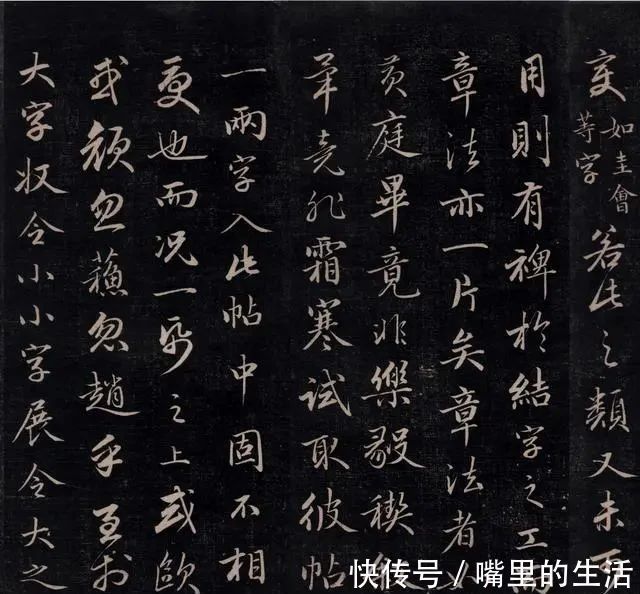 如圭會
等字
若此之類又未可
用則有裨於結字之工而
章法亦一片矣章法者如
黄庭畢竟非樂毅禊叙
畢竟非霜寒試取彼帖
一兩字入此帖中固不相
更也而况一帋之上或歐
或顔忽蘇忽趙乎至於
大字収令小小字展令大之
快传号/嘴里的生活